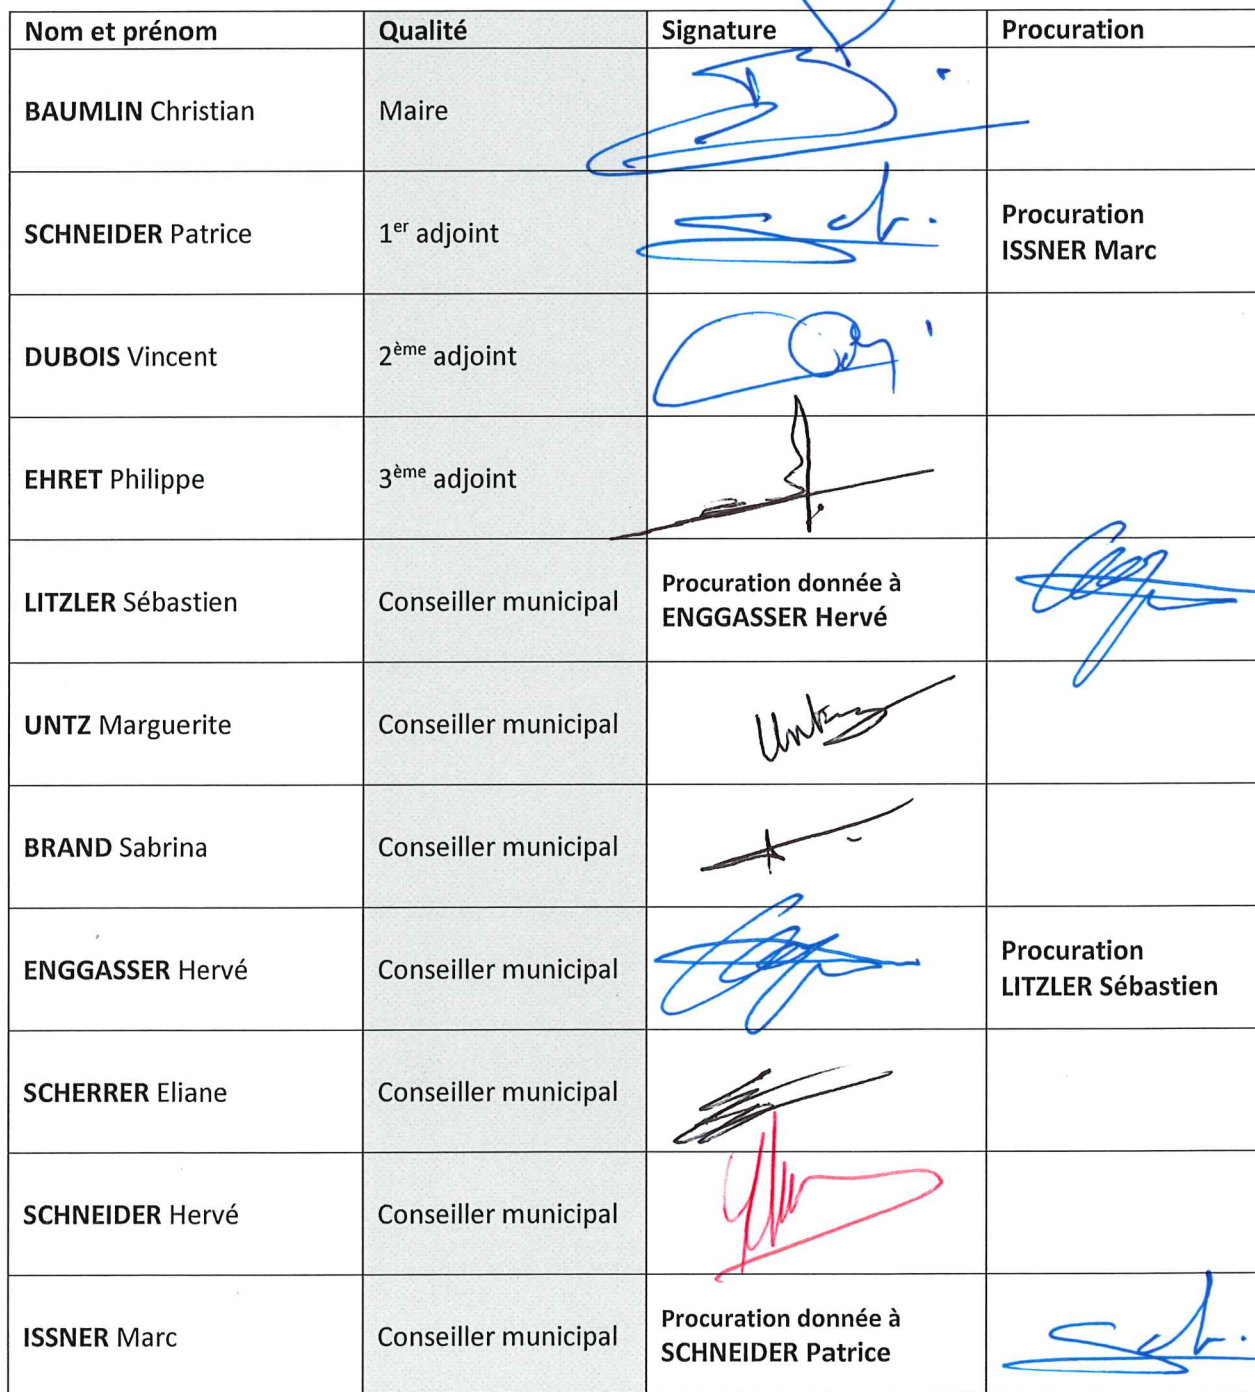 Nom et prénom Qualité Signature Procuration
BAUMLIN Christian Maire
SCHNEIDER Patrice 1er adjoint Procuration
ISSNER Marc
DUBOIS Vincent 2ème adjoint
EHRET Philippe 3ème adjoint
LITZLER Sébastien Conseiller municipal Procuration donnée à
ENGGASSER Hervé
UNTZ Marguerite Conseiller municipal Untz
BRAND Sabrina Conseiller municipal
ENGGASSER Hervé Conseiller municipal Procuration
LITZLER Sébastien
SCHERRER Eliane Conseiller municipal
SCHNEIDER Hervé Conseiller municipal
ISSNER Marc Conseiller municipal Procuration donnée à
SCHNEIDER Patrice